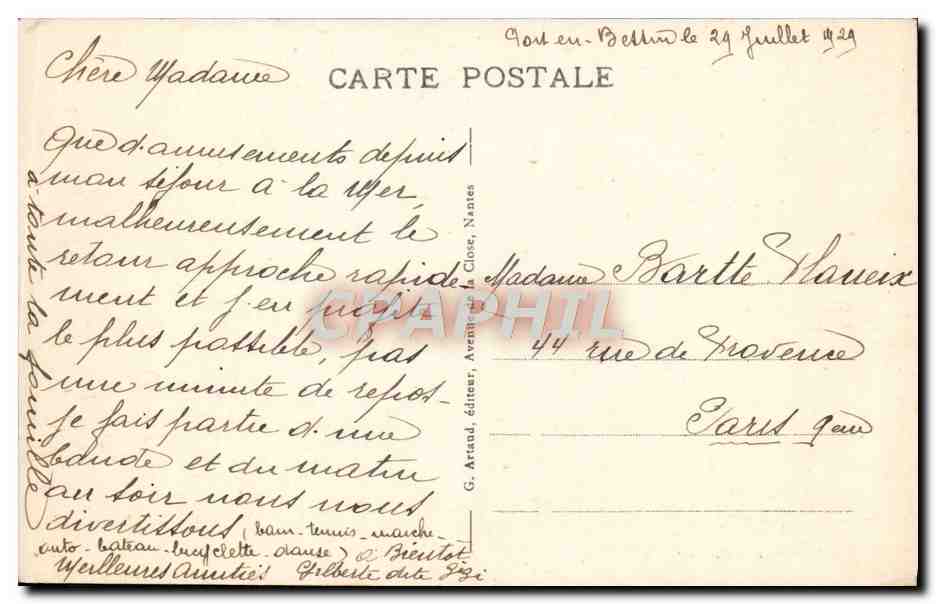 Port en-Bessin le 29 Juillet 1929
Chère Madame
CARTE POSTALE
Que d'amusements depuis
mon séjour à la Mer,
malheureusement le
retour approche rapide-
ment et j'en profite
le plus possible, pas
une minute de repos-
je fais partie d'une
bande et du matin
au soir nous nous
divertissons (bain-tennis-marche-
auto-bateau-bicyclette-danse) à Bientôt
Meilleures Amitiés Gilberte dite Gigi
à toute la famille
G. Artaud, éditeur, Avenue de la Close, Nantes
Madame Bartte Planeix
44 rue de Provence
Paris 9ème
CPAPHIL